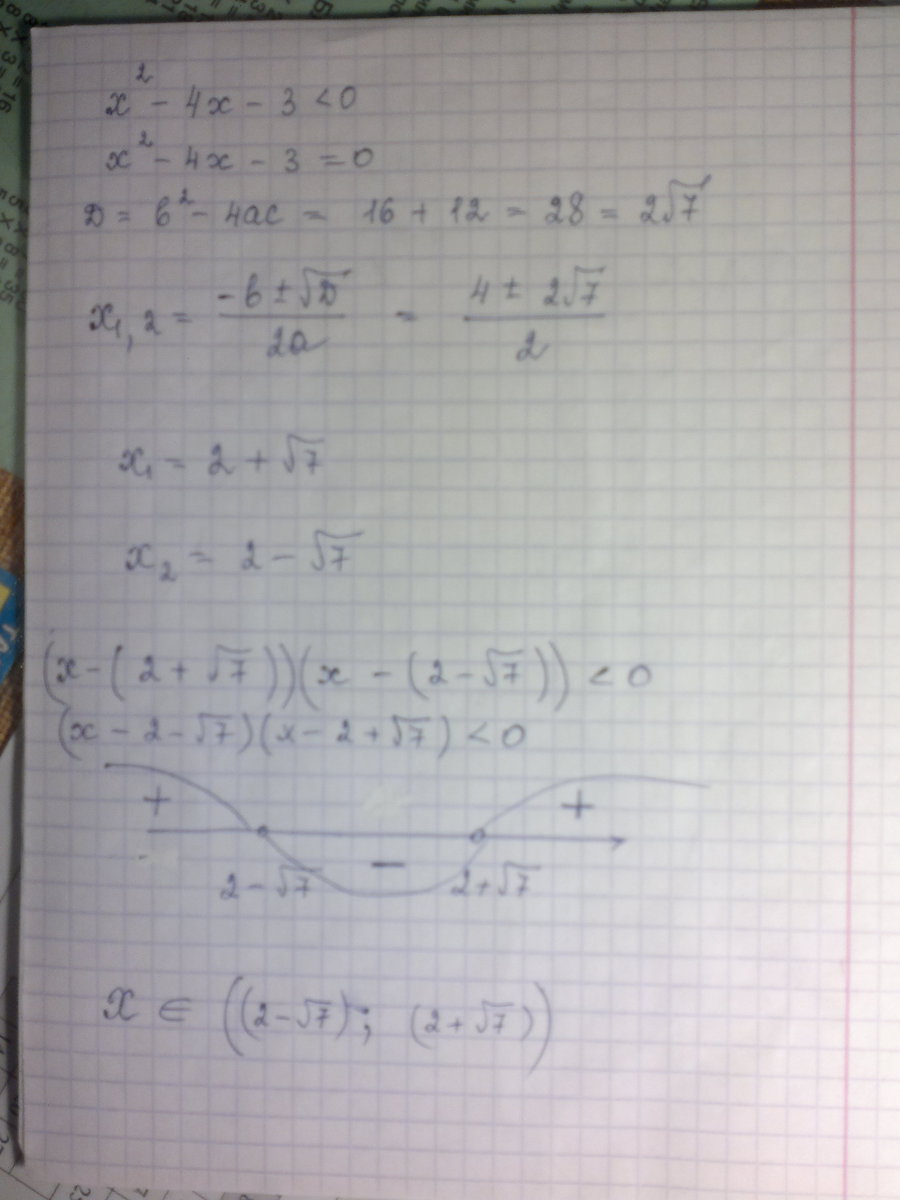 x² - 4x - 3 < 0
x² - 4x - 3 = 0
D = b² - 4ac = 16 + 12 = 28 = 2√7
x₁,₂ = (-b ± √D)/2a = (4 ± 2√7)/2
x₁ = 2 + √7
x₂ = 2 - √7
(x - (2 + √7))(x - (2 - √7)) < 0
(x - 2 - √7)(x - 2 + √7) < 0
+ − +
2 - √7 2 + √7
x ∈ ((2 - √7); (2 + √7))